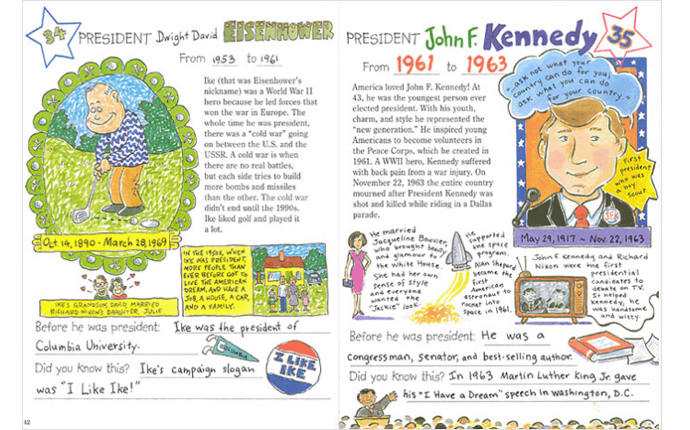 34 PRESIDENT Dwight David EISENHOWER
From 1953 to 1961
Ike (that was Eisenhower's
nickname) was a World War II
hero because he led forces that
won the war in Europe. The
whole time he was president,
there was a "cold war" going
on between the U.S. and the
USSR. A cold war is when
there are no real battles,
but each side tries to build
more bombs and missiles
than the other. The cold war
didn't end until the 1990s.
Ike liked golf and played it
a lot.
Oct. 14, 1890 - March 28, 1969
IKE'S GRANDSON DAVID MARRIED
RICHARD NIXON'S DAUGHTER, JULIE
IN THE 1950s, WHEN
IKE WAS PRESIDENT,
MORE PEOPLE THAN
EVER BEFORE GOT TO
LIVE THE AMERICAN
DREAM, AND HAVE A
JOB, A HOUSE, A CAR,
AND A FAMILY.
Before he was president: Ike was the president of
Columbia University.
COLUMBIA
Did you know this? Ike's campaign slogan
was "I Like Ike!"
I LIKE
IKE
12
PRESIDENT John F. Kennedy 35
From 1961 to 1963
America loved John F. Kennedy! At
43, he was the youngest person ever
elected president. With his youth,
charm, and style he represented the
"new generation." He inspired young
Americans to become volunteers in
the Peace Corps, which he created in
1961. A WWII hero, Kennedy suffered
with back pain from a war injury. On
November 22, 1963 the entire country
mourned after President Kennedy was
shot and killed while riding in a Dallas
parade.
"...ask not what your
country can do for you;
ask what you can do
for your country."
First
president
who was
a boy
scout.
May 29, 1917 ~ Nov. 22, 1963
He married
Jacqueline Bouvier,
who brought beauty
and glamour to
the White House.
She had her own
sense of style
and everyone
wanted the
"Jackie" look.
He
supported
the space
program.
Alan Shepard
became the
first
American
astronaut to
rocket into
space in 1961.
John F. Kennedy and Richard
Nixon were the first
presidential
candidates to
debate on TV.
It helped
Kennedy; he
was handsome
and witty.
Before he was president: He was a
congressman, senator, and best-selling author.
Did you know this? In 1963 Martin Luther King Jr. gave
his "I Have a Dream" speech in Washington, D.C.